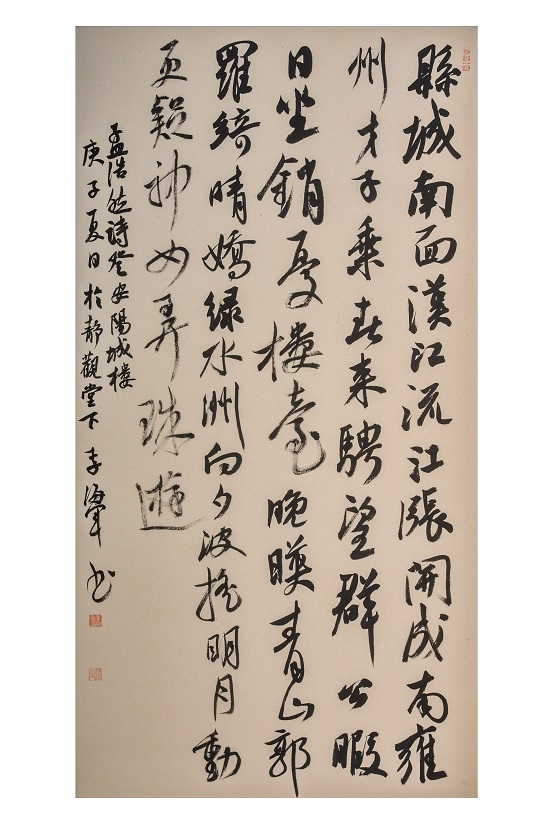 縣城南面漢江流江漲開成南雍
州才子乘春来騁望群公暇
日坐銷憂樓臺晚暎青山郭
羅綺晴嬌緑水洲向夕波摇明月動
更疑神女弄珠遊
孟浩然詩登安陽城楼
庚子夏日於静觀堂下李书